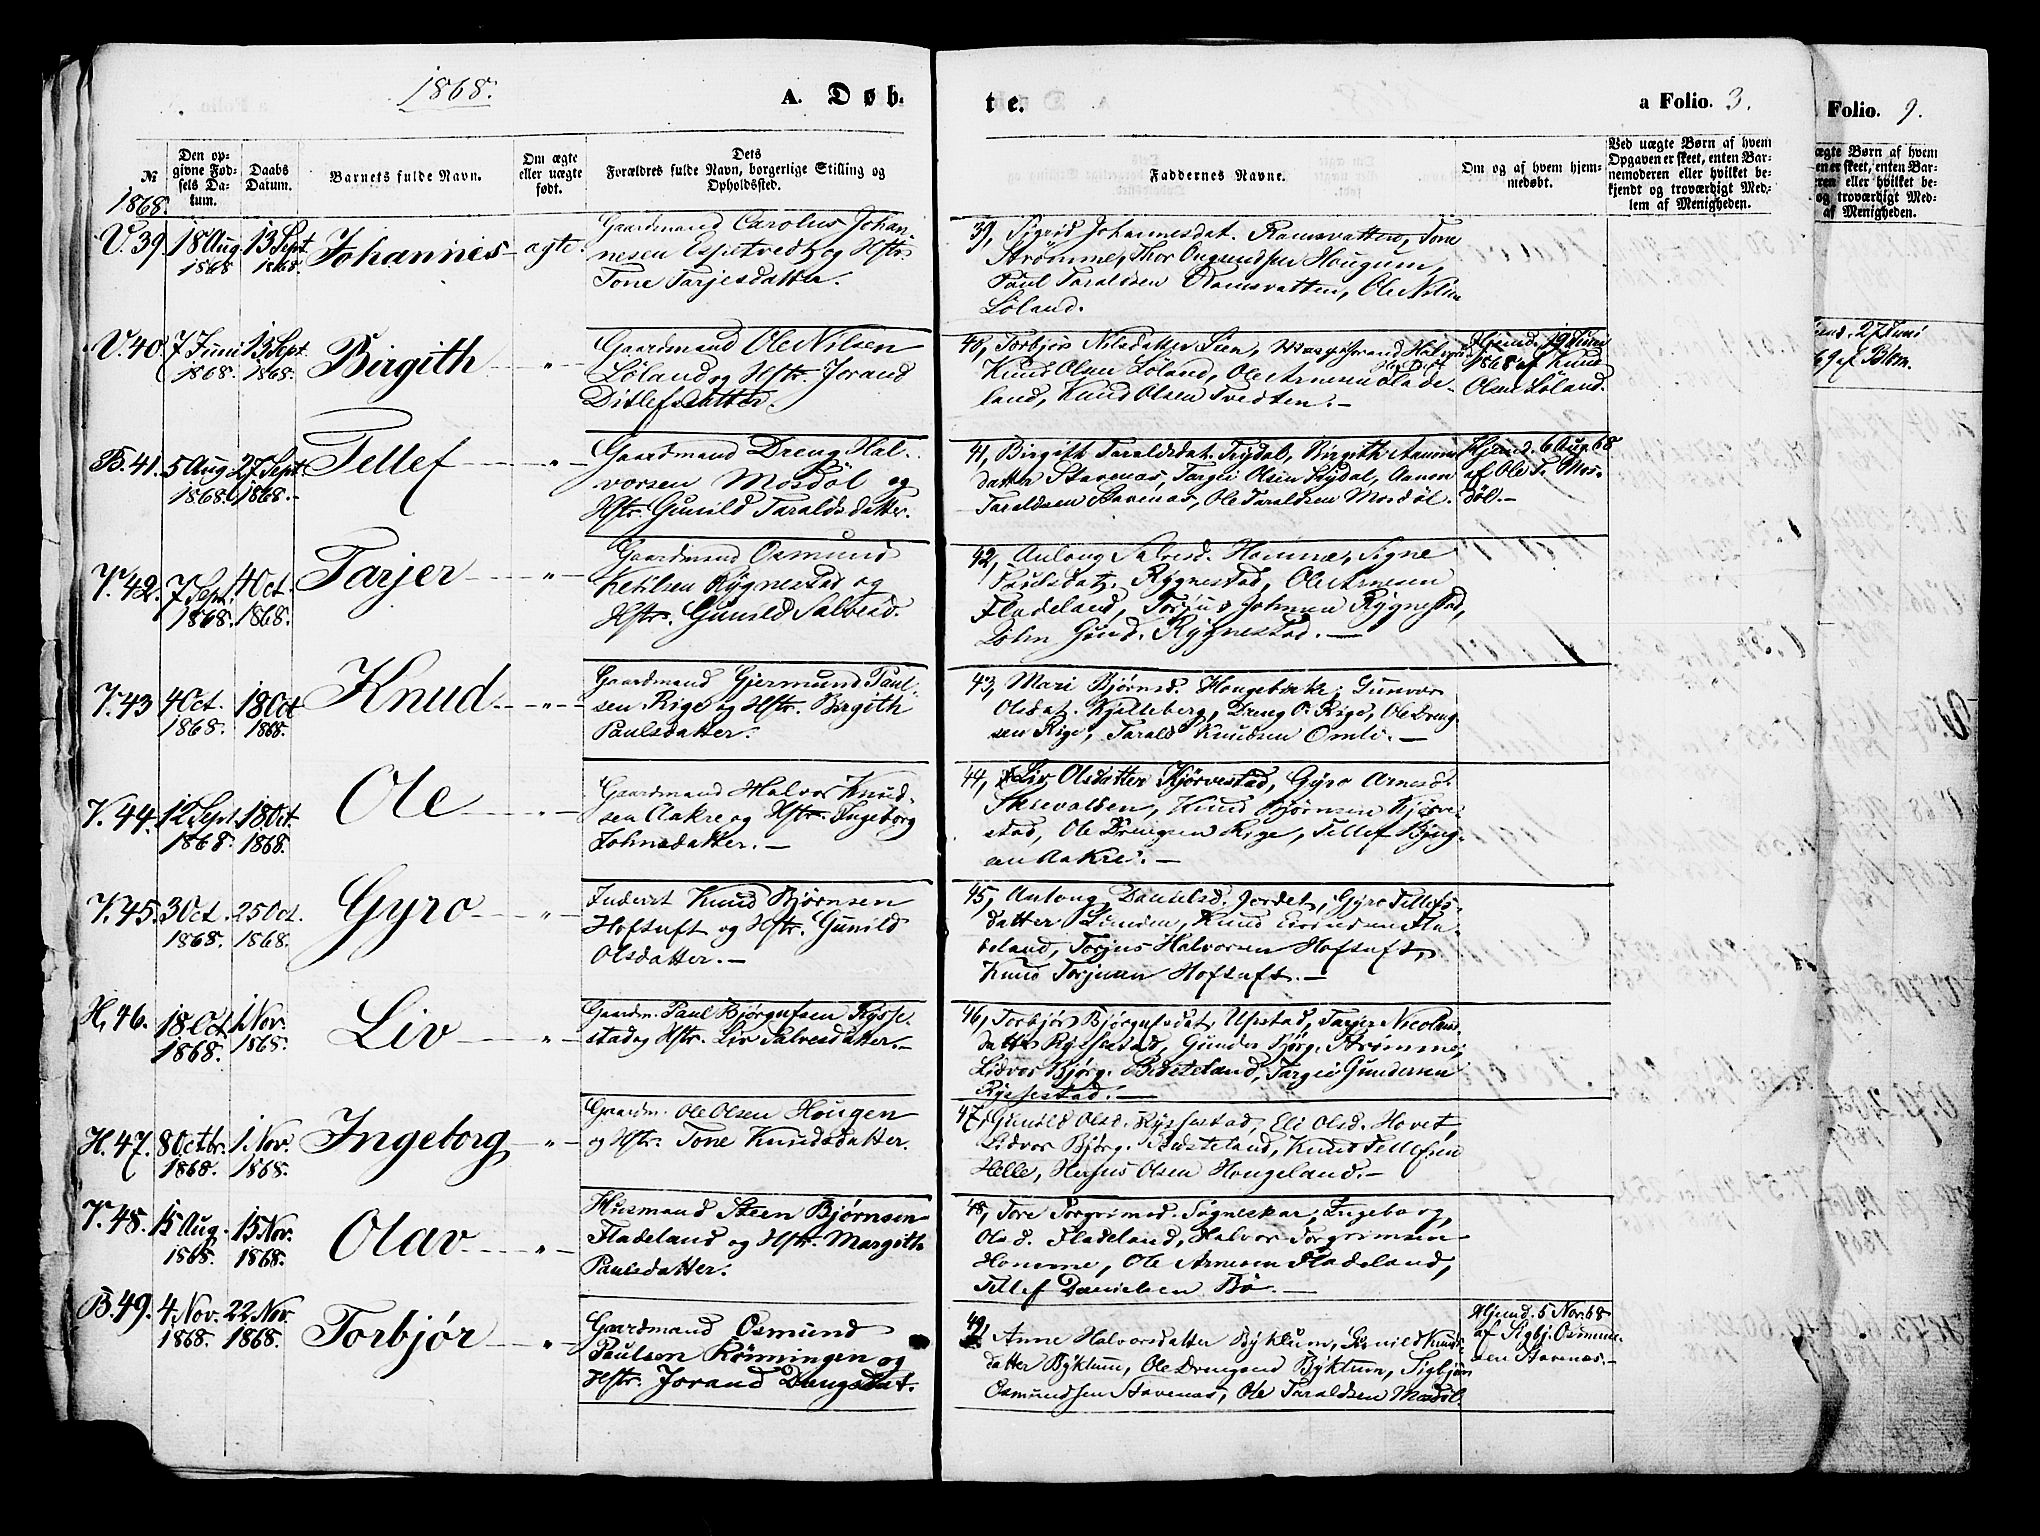 1868.
A. Døb-
te.
a Folio. 3.
№
Den op-
givne Fød-
sels Da-
tum.
Daabs
Datum.
Barnets fulde Navn.
Om ægte
eller uægte
født.
Dets
Forældres fulde Navn, borgerlige Stilling og
Opholdssted.
Faddernes Navne.
Om og af hvem hjem-
medøbt.
Ved uægte Børn af hvem
Opgaven er skeet, enten Bar-
nemoderen eller hvilket be-
kjendt og troværdigt Med-
lem af Menigheden.
1868.
V. 39 18 Aug 1868 13 Sept. 1868. Johannes ægte.
Gaardmand Carolus Johan-
nesen Espetvedt og Hstr.
Tone Tarjesdatter.
39, Sigrid Johannesdat. Ramsvatten, Tone
Strømme, Thor Hougum,
Paul Taraldsen Ramsvatten, Ole
Løland.
V. 40 7 Juni 1868. 13 Sept. 1868. Birgith — " —
Gaardmand Ole Nilsen
Løland og Hstr. Jorand
Ditlefsdatter.
40, Torbjør Nilsdatter
Knud Olsen Løland, Ole Arnesen Flade-
land, Knud Olsen Tvedten. —
Hjemd. 19 Juni
1868 af Knud
Olsen Løland.
B. 41. 5 Aug 1868. 27 Sept. 1868. — Tellef — " —
Gaardmand Dreng Hal-
vorsen Mosdøl og
Hstr. Gunild Taraldsdatter.
41, Birgith Taraldsdat. Trydal, Birgith Aanun-
datter Stavenæs, Targei Olsen Trydal, Aanon
Taraldsen Stavenæs, Ole Taraldsen Mosdøl.
Hjemd. 6 Aug. 68
af Ole T. Mos-
døl. —
V. 42. 7 Sept. 1868. 4 Oct. 1868. Tarjer — " —
Gaardmand Osmund
Ketilsen Rygnestad og
Hstr. Gunild Salvesd.
42, Anlong Salvesd. Homme, Signe
Paulsdat. Rygnestad, Ole Arnesen
Fladeland, Torjus Johnsen Rygnestad,
John Gund. Rygnestad. —
V. 43 4 Oct. 1868. 18 Oct 1868. Knud — " —
Gaardmand Gjermund Paul-
sen Rige og Hstr. Birgith
Paulsdatter.
43, Mari Bjørnsd. Hougebirke, Gunvor
Olsdat. Kjelleberg, Dreng O. Rige, Ole Dreng-
sen Rige, Tarald Knudsen Omli. —
V. 44. 12 Sept. 1868. 18 Oct. 1868. Ole — " —
Gaardmand Halvor Knud-
sen Aakre og Hstr. Ingeborg
Johnsdatter. —
44, Liv Olsdatter Kjørvestad, Gyro Arnesd.
Knud Bjørnsen Kjørve-
stad, Ole Drengsen Rige, Tellef
Aakre. —
V. 45. 3 Oct. 1868. 25 Oct. 1868. Gyro — " —
Inderst Knud Bjørnsen
Hoftuft og Hstr. Gunild
Olsdatter. —
45, Anlong Danielsd. Jordet, Gyro Tellefs-
datter Linden, Knud Eivindsen Fla-
deland, Torjus Halvorsen Hoftuft,
Knud Torjusen Hoftuft. —
H. 46. 18 Oct 1868. 1 Nov. 1868. Liv — " —
Gaardm. Paul Bjørgufsen Rysse-
stad og Hstr. Liv Salvesdatter. —
46, Torbjør Bjørgufsdat. Upstad, Tarjer Nicolaus-
datter Ryssestad, Gunder Bjørg. Strømme,
Lidvor Bjørg. Besteland, Targei Gundersen
Ryssestad. —
H. 47. 8 Octbr. 1868. 1. Nov. 1868. Ingeborg — " —
Gaardm. Ole Olsen Hougen
og Hstr. Tone Knudsdatter.
47, Gunild Olsd. Ryssestad, Eli Olsd. Hovet,
Lidvor Bjørg. Besteland, Knud Tellefsen
Helle, Herjus Olsen Hougeland. —
V. 48. 15 Aug. 1868. 15 Nov. 1868. Olav — " —
Husmand Steen Bjørnsen
Fladeland og Hstr. Margith
Paulsdatter.
48, Tore Torgrimsd. Sagneskar, Ingeborg
Olsd. Fladeland, Halvor Torgrimsen
Homme, Ole Arnesen Fladeland,
Tellef Danielsen Bø. —
B. 49. 4 Nov. 1868. 22 Nov. 1868. Torbjør — " —
Gaardmand Osmund
Paulsen Rönningen og
Hstr. Jorand Drengsdat.
49, Anne Halvorsdatter Byklum, Gunild Knuds-
datter Byklum, Ole Drengsen Byklum, Sigbjørn
Osmundsen Stavenæs, Ole Taraldsen Mosdøl.
Hjemd. 5 Nov. 68
af Sigbj. Osmund-
sen Stavenæs. —
Folio. 9.
ægte Børn af hvem
en er skeet, enten Bar-
ren eller hvilket be-
og troværdigt Med-
af Menigheden.
27 Juni
69 af Blom.